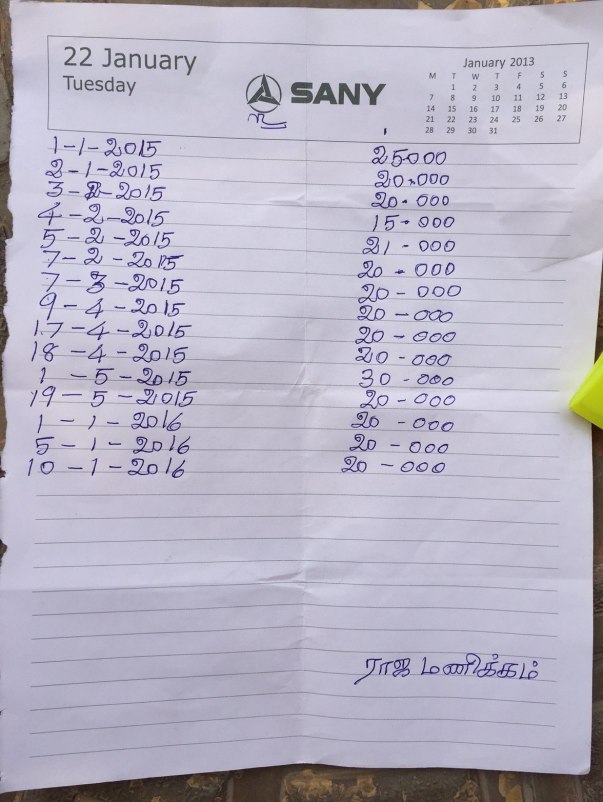 22 January
Tuesday
SANY
January 2013
M T W T F S S
1 2 3 4 5 6
7 8 9 10 11 12 13
14 15 16 17 18 19 20
21 22 23 24 25 26 27
28 29 30 31
உ
1-1-2015 25000
2-1-2015 20.000
3-2-2015 20.000
4-2-2015 15-000
5-2-2015 21-000
7-2-2015 20-000
7-3-2015 20-000
9-4-2015 20-000
17-4-2015 20-000
18-4-2015 20-000
1-5-2015 30-000
19-5-2015 20-000
1-1-2016 20-000
5-1-2016 20-000
10-1-2016 20-000
ராஜ மணிக்கம்